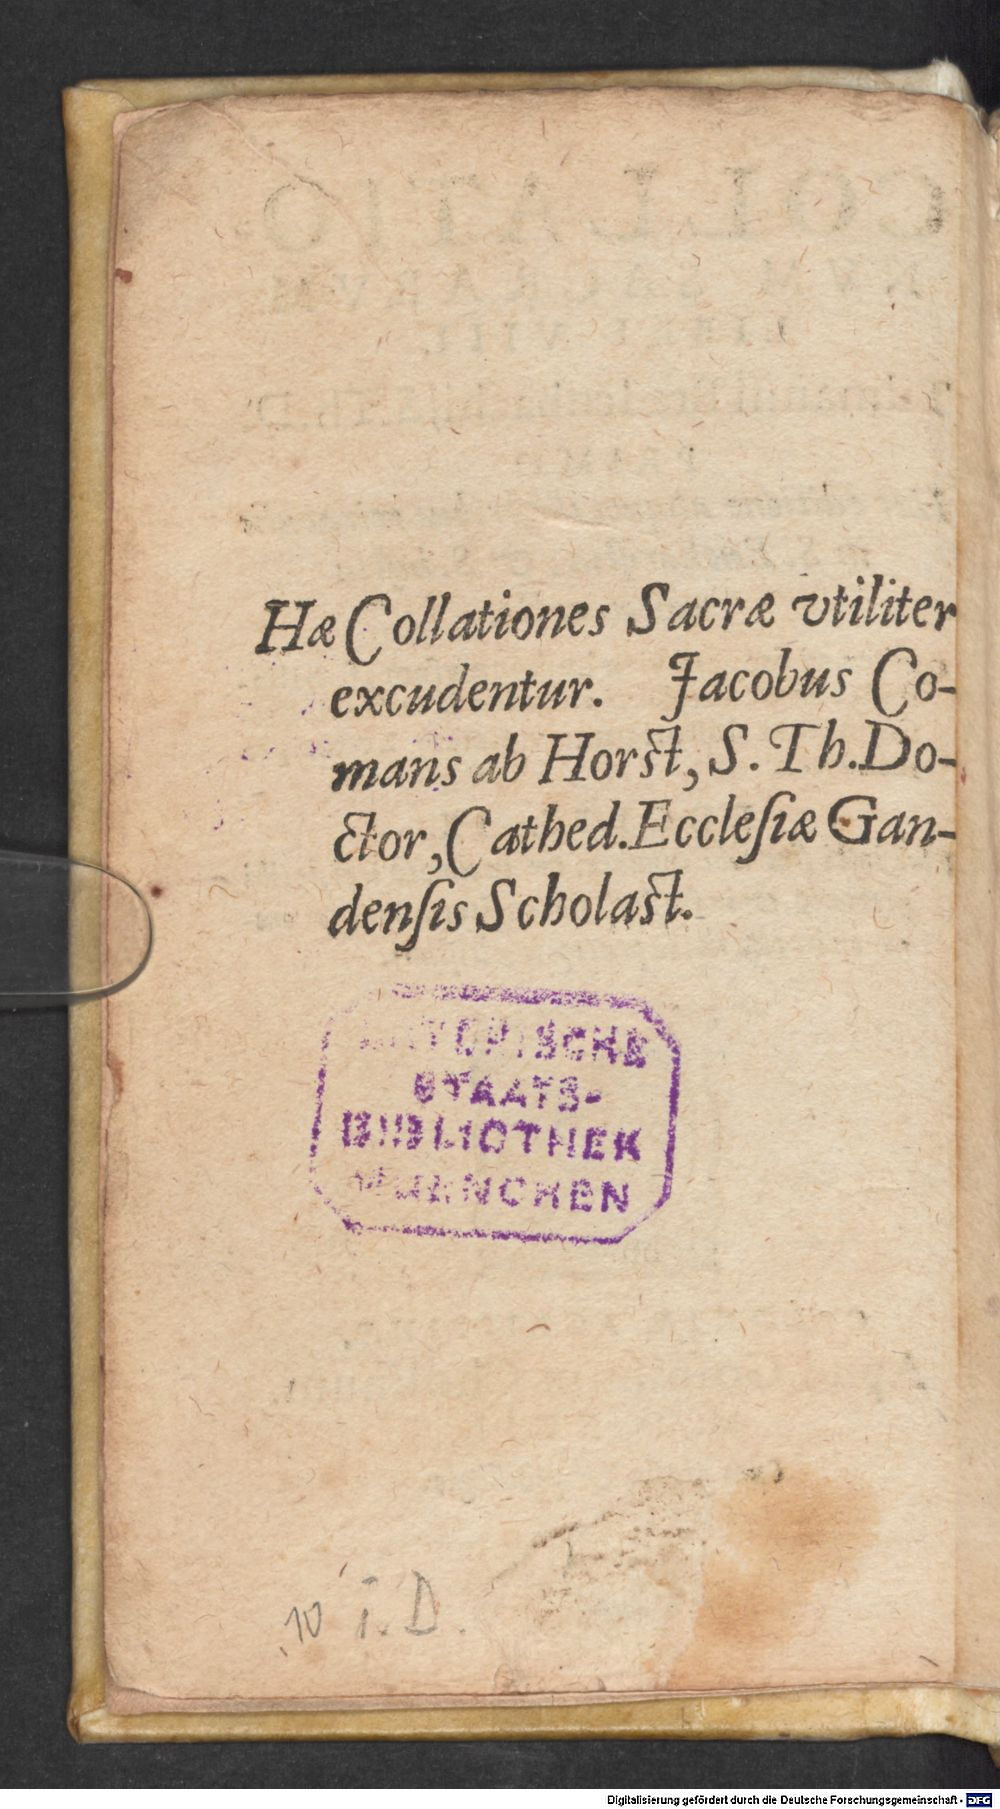 Hæ Collationes Sacræ vtiliter
excudentur. Jacobus Co-
mans ab Horst, S. Th. Do-
ctor, Cathed. Ecclesiæ Gan-
densis Scholast.
STAATS-
BIBLIOTHEK
MUENCHEN
10 i. D.
Digitalisierung gefördert durch die Deutsche Forschungsgemeinschaft - DFG